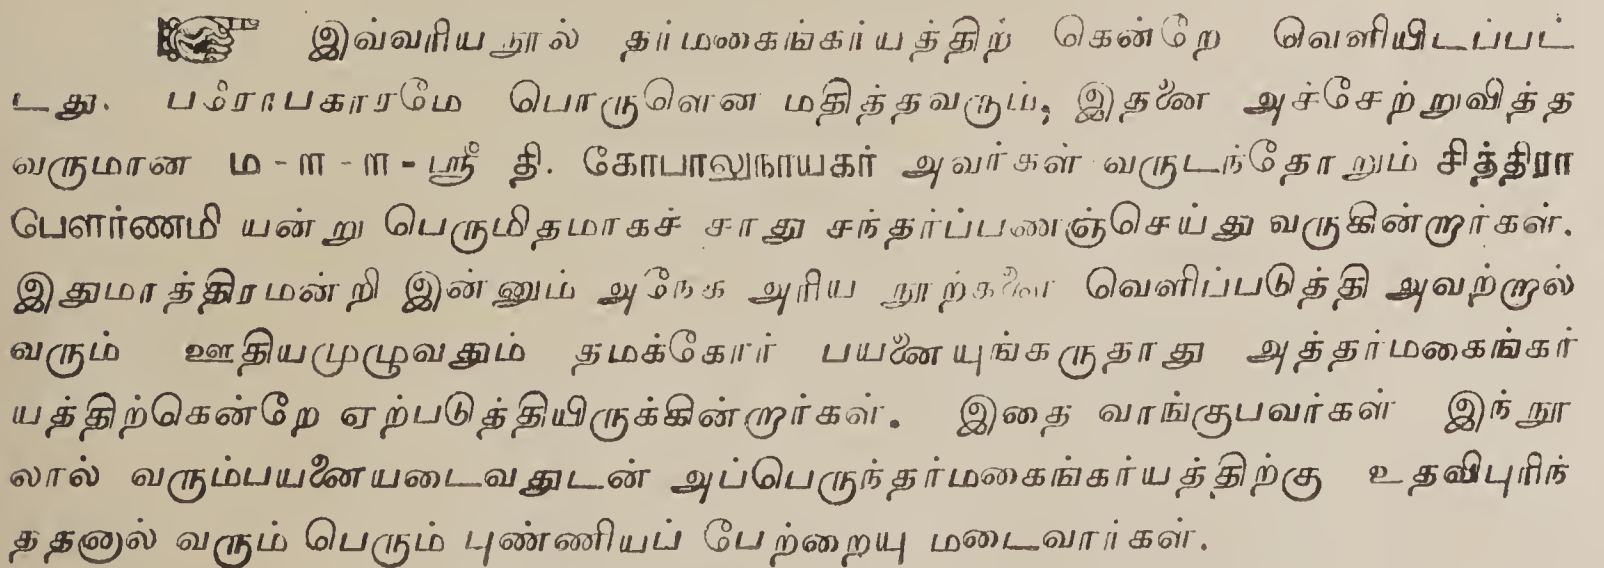 ☞ இவ்வரிய நூல் தர்மகைங்கர்யத்திற் கென்றே வெளியிடப்பட்
டது. பரோபகாரமே பொருளென மதித்தவரும், இதனை அச்சேற்றுவித்த
வருமான ம-ள-ள-ஸ்ரீ தி. கோபாலுநாயகர் அவர்கள் வருடந்தோறும் சித்திரா
பௌர்ணமி யன்று பெருமிதமாகச் சாது சந்தர்ப்பணஞ்செய்து வருகின்றார்கள்.
இதுமாத்திரமன்றி இன்னும் அநேக அரிய நூற்களை வெளிப்படுத்தி அவற்றால்
வரும் ஊதியமுழுவதும் தமக்கோர் பயனையுங்கருதாது அத்தர்மகைங்கர்
யத்திற்கென்றே ஏற்படுத்தியிருக்கின்றார்கள். இதை வாங்குபவர்கள் இந்நூ
லால் வரும்பயனையடைவதுடன் அப்பெருந்தர்மகைங்கர்யத்திற்கு உதவிபுரிந்
ததனால் வரும் பெரும் புண்ணியப் பேற்றையு மடைவார்கள்.